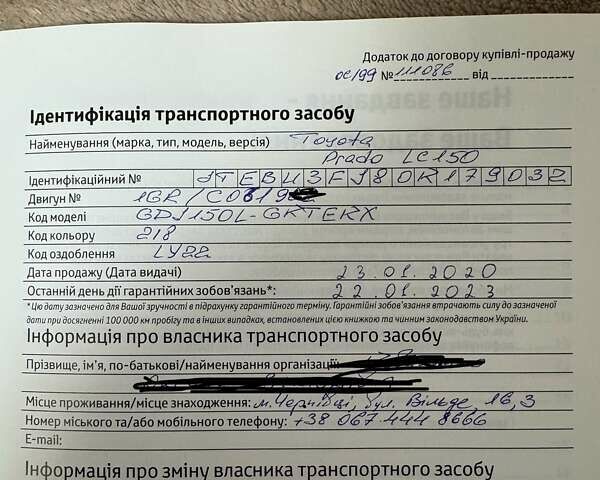 Додаток до договору купівлі-продажу
ОС/99 № 111086 від
Ідентифікація транспортного засобу
Найменування (марка, тип, модель, версія) Toyota
Prado LC150
Ідентифікаційний № JTEBU3FJ80K179032
Двигун № 1GR/C0619
Код моделі GDJ150L-GKTEKX
Код кольору 218
Код оздоблення LY22
Дата продажу (Дата видачі) 23.01.2020
Останній день дії гарантійних зобов'язань*: 22.01.2023
* Цю дату зазначено для Вашої зручності в підрахунку гарантійного терміну. Гарантійні зобов'язання втрачають силу до зазначеної
дати при досягненні 100 000 км пробігу та в інших випадках, встановлених цією книжкою та чинним законодавством України.
Інформація про власника транспортного засобу
Прізвище, ім'я, по-батькові/найменування організації
Місце проживання/місце знаходження: м. Чернівці, бул. Вільде 16, 3
Номер міського та/або мобільного телефону: +38 067 444 8666
E-mail:
Інформація про зміну власника транспортного засобу